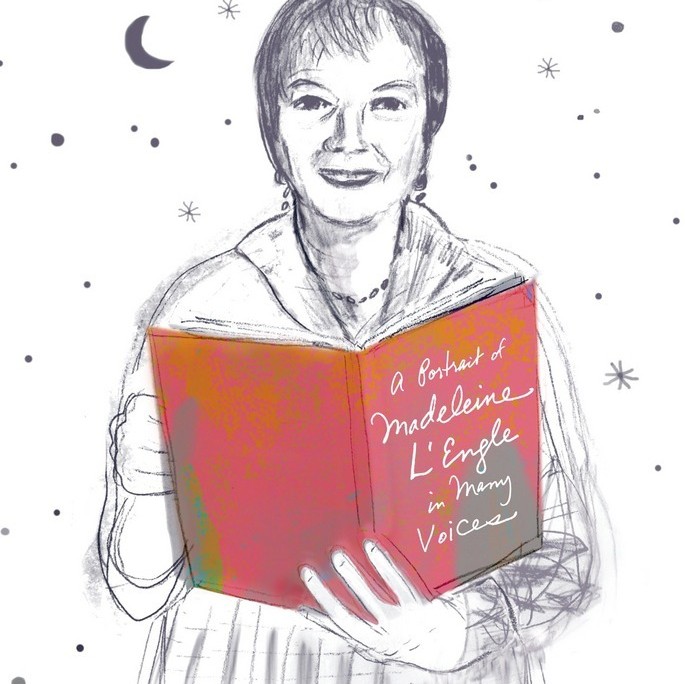 A Portrait of
Madeleine
L'Engle
in Many
Voices